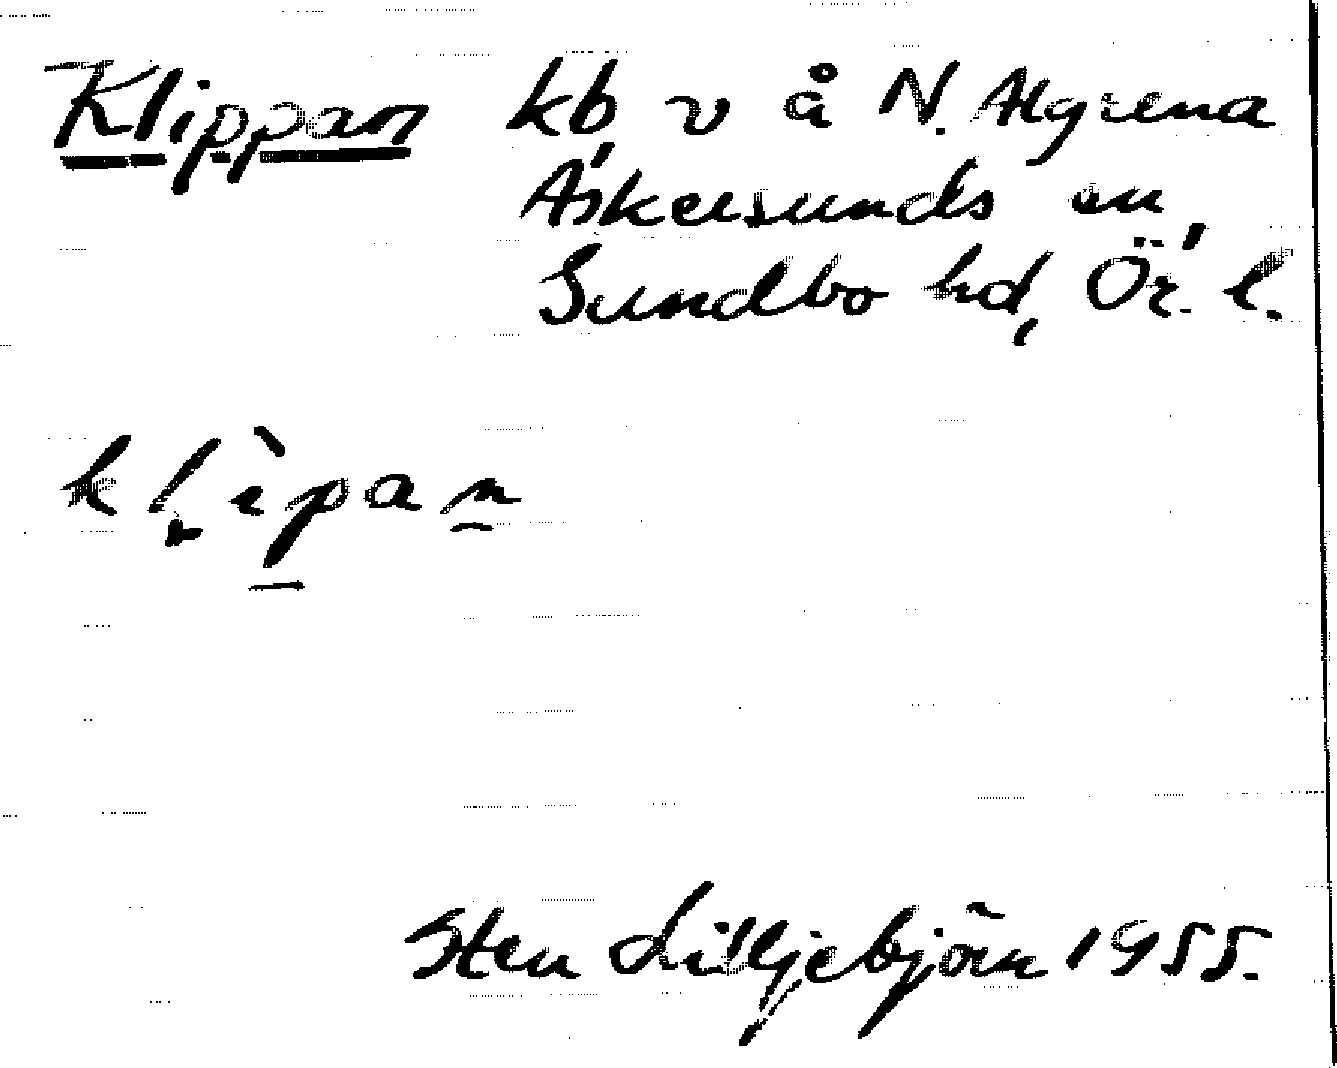 Klippan kb v å N. Algrena
Askersunds sn,
Sundbo hd, Ör. l.
klìpan
Sten Liljebjörn 1955.